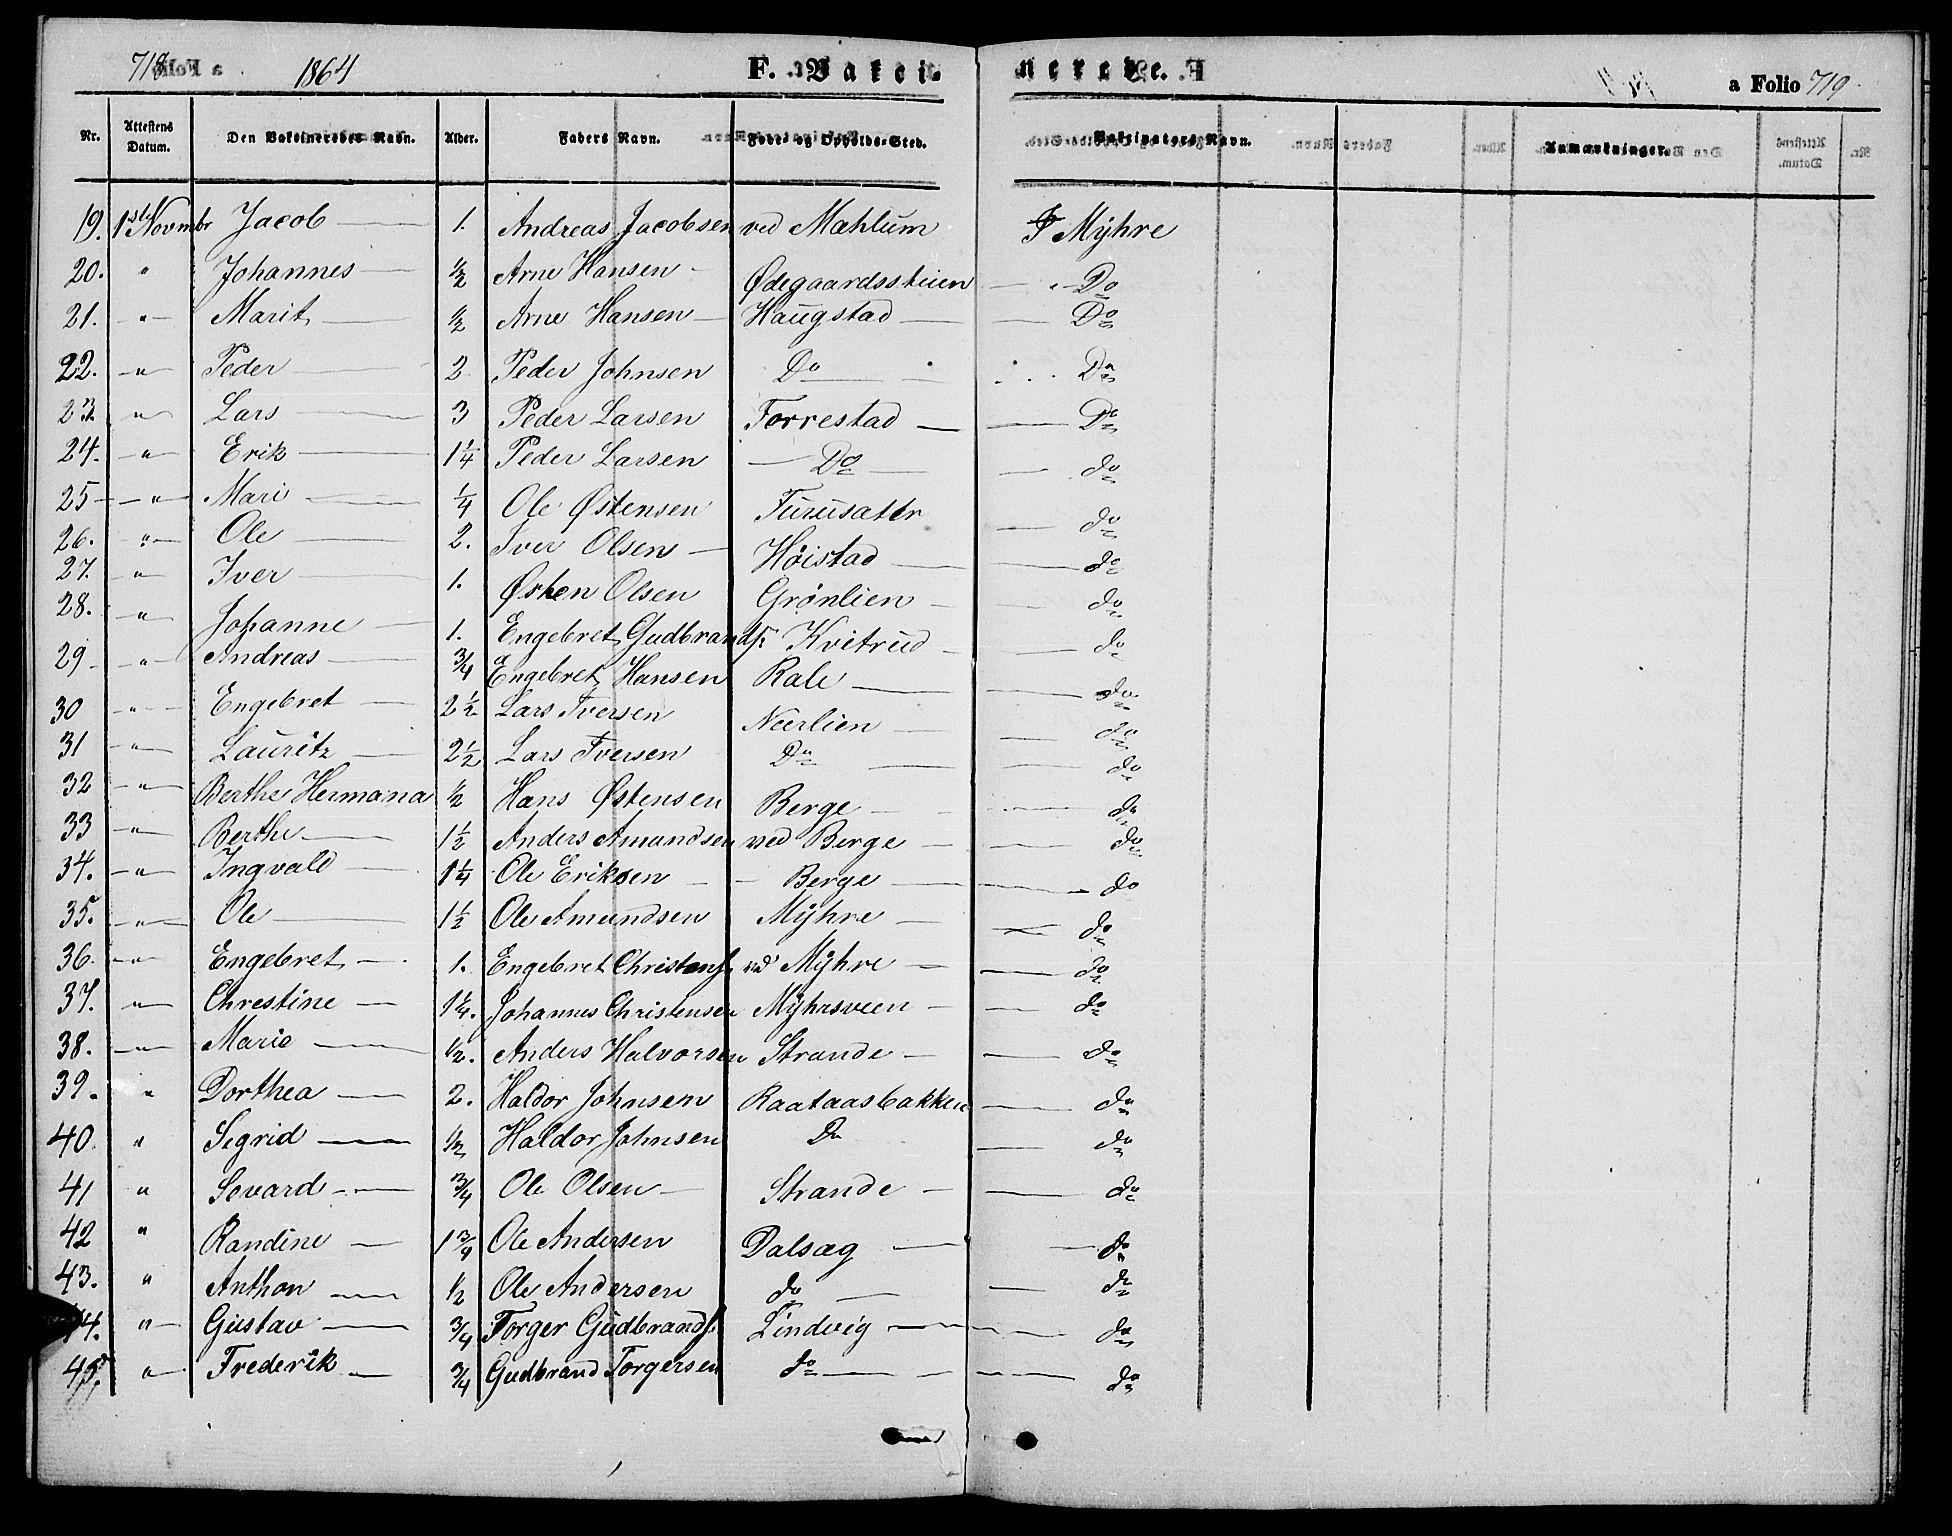 718 a Folio 1864 F. Vakci- nerede. a Folio 719
Nr. Attestens Datum. Den Vakcineredes Navn. Alder. Faders Navn. Føde- og Opholds-Sted. Vakcinators Navn. Anmærkninger.
19. 1ste Novmbr Jacob 1. Andreas Jacobsen ved Mæhlum Myhre
20. " Johannes ½ Arne Hansen Ødegaardsstuen Do
21. " Marit ½ Arne Hansen Haugstad Do
22. " Peder 2 Peder Johnsen Do Do
23 " Lars 3 Peder Larsen Forrestad Do
24. " Erik 1¼ Peder Larsen Do do
25 " Mari ¼ Ole Østensen Furusætr do
26. " Ole 2. Iver Olsen Høistad do
27. " Iver 1. Østen Olsen Grønlien do
28. " Johanne 1. Engebret Gudbrands. Kvitrud do
29 " Andreas ¾ Engebret Hansen Rale do
30 " Engebret 2½ Lars Iversen Nærlien do
31 " Lauritz 2½ Lars Iversen Do do
32 " Berthe Hermana ½ Hans Østensen Berge do
33 " Berthe 1½ Anders Amundsen ved Berge do
34. " Ingvald 1¼ Ole Eriksen Berge do
35. " Ole 1½ Ole Amundsen Myhre do
36. " Engebret 1. Engebret Christens. ved Myhre do
37. " Chrestine 1¼. Johannes Christensen Myhrsveen do
38. " Marie ½. Anders Halvorsen Strande do
39. " Dorthea 2. Haldor Johnsen Raataasbakken do
40. " Segrid ½ Haldor Johnsen Do do
41 " Sevard ¾ Ole Olsen Strande do
42 " Randine 1¾ Ole Andersen Dalsæg do
43. " Anthon ½ Ole Andersen do do
44. " Gustav ¾ Torger Gudbrands. Lindvig do
45. " Frederik ¾ Gudbrand Torgersen do do